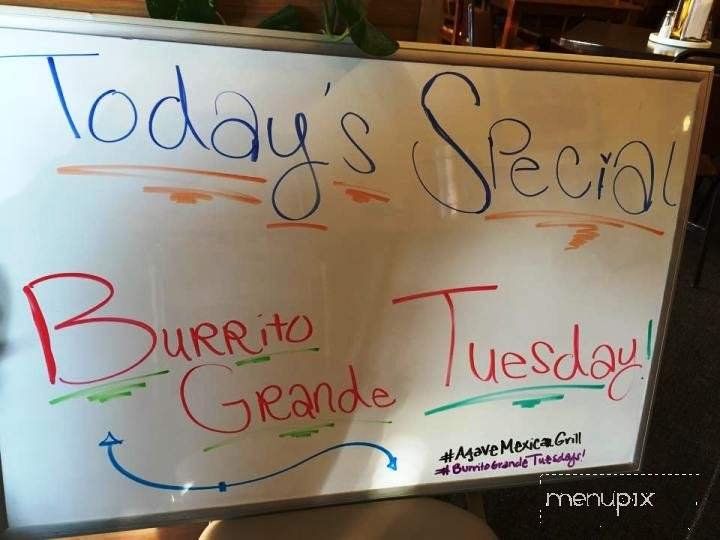 Today's Special
Burrito Tuesday!
Grande
#AgaveMexicanGrill
#BurritoGrandeTuesdays!
menupix